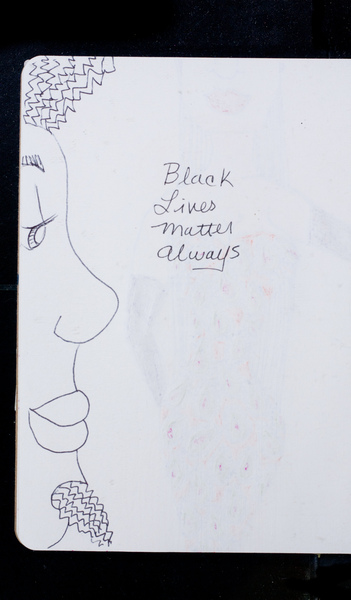 Black
Lives
Matter
always